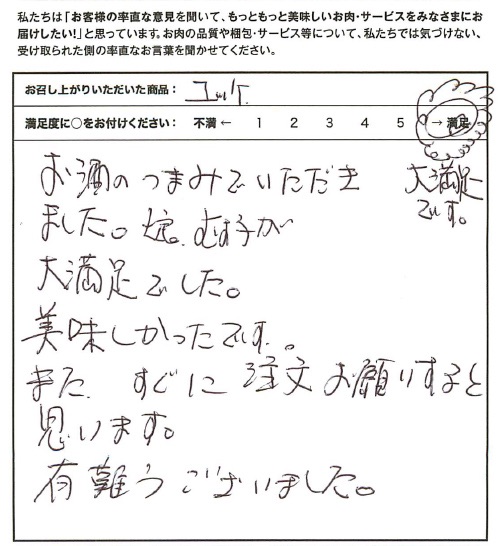 私たちは「お客様の率直な意見を聞いて、もっともっと美味しいお肉・サービスをみなさまにお
届けしたい!」と思っています。お肉の品質や梱包・サービス等について、私たちでは気づけない、
受け取られた側の率直なお言葉を聞かせてください。
お召し上がりいただいた商品： ユッケ
満足度に○をお付けください： 不満 ← 1 2 3 4 5 → 満足
大満足
です。
お酒のつまみでいただき
ました。 むす子が
大満足でした。
美味しかったです。
また、すぐに注文お願りすると
思います。
有難うございました。